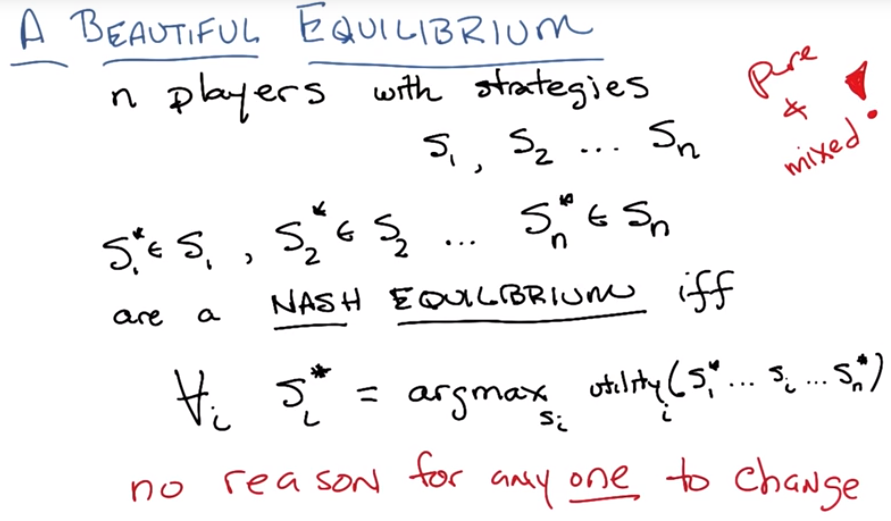 A BEAUTIFUL EQUILIBRIUM
n players with strategies
S₁, S₂ ... Sₙ
pure
&
mixed!
S₁* ∈ S₁, S₂* ∈ S₂ ... Sₙ* ∈ Sₙ
are a NASH EQUILBRIUM iff
∀ᵢ Sᵢ* = argmax_{sᵢ} utilityᵢ(S₁* ... Sᵢ ... Sₙ*)
no reason for any one to change